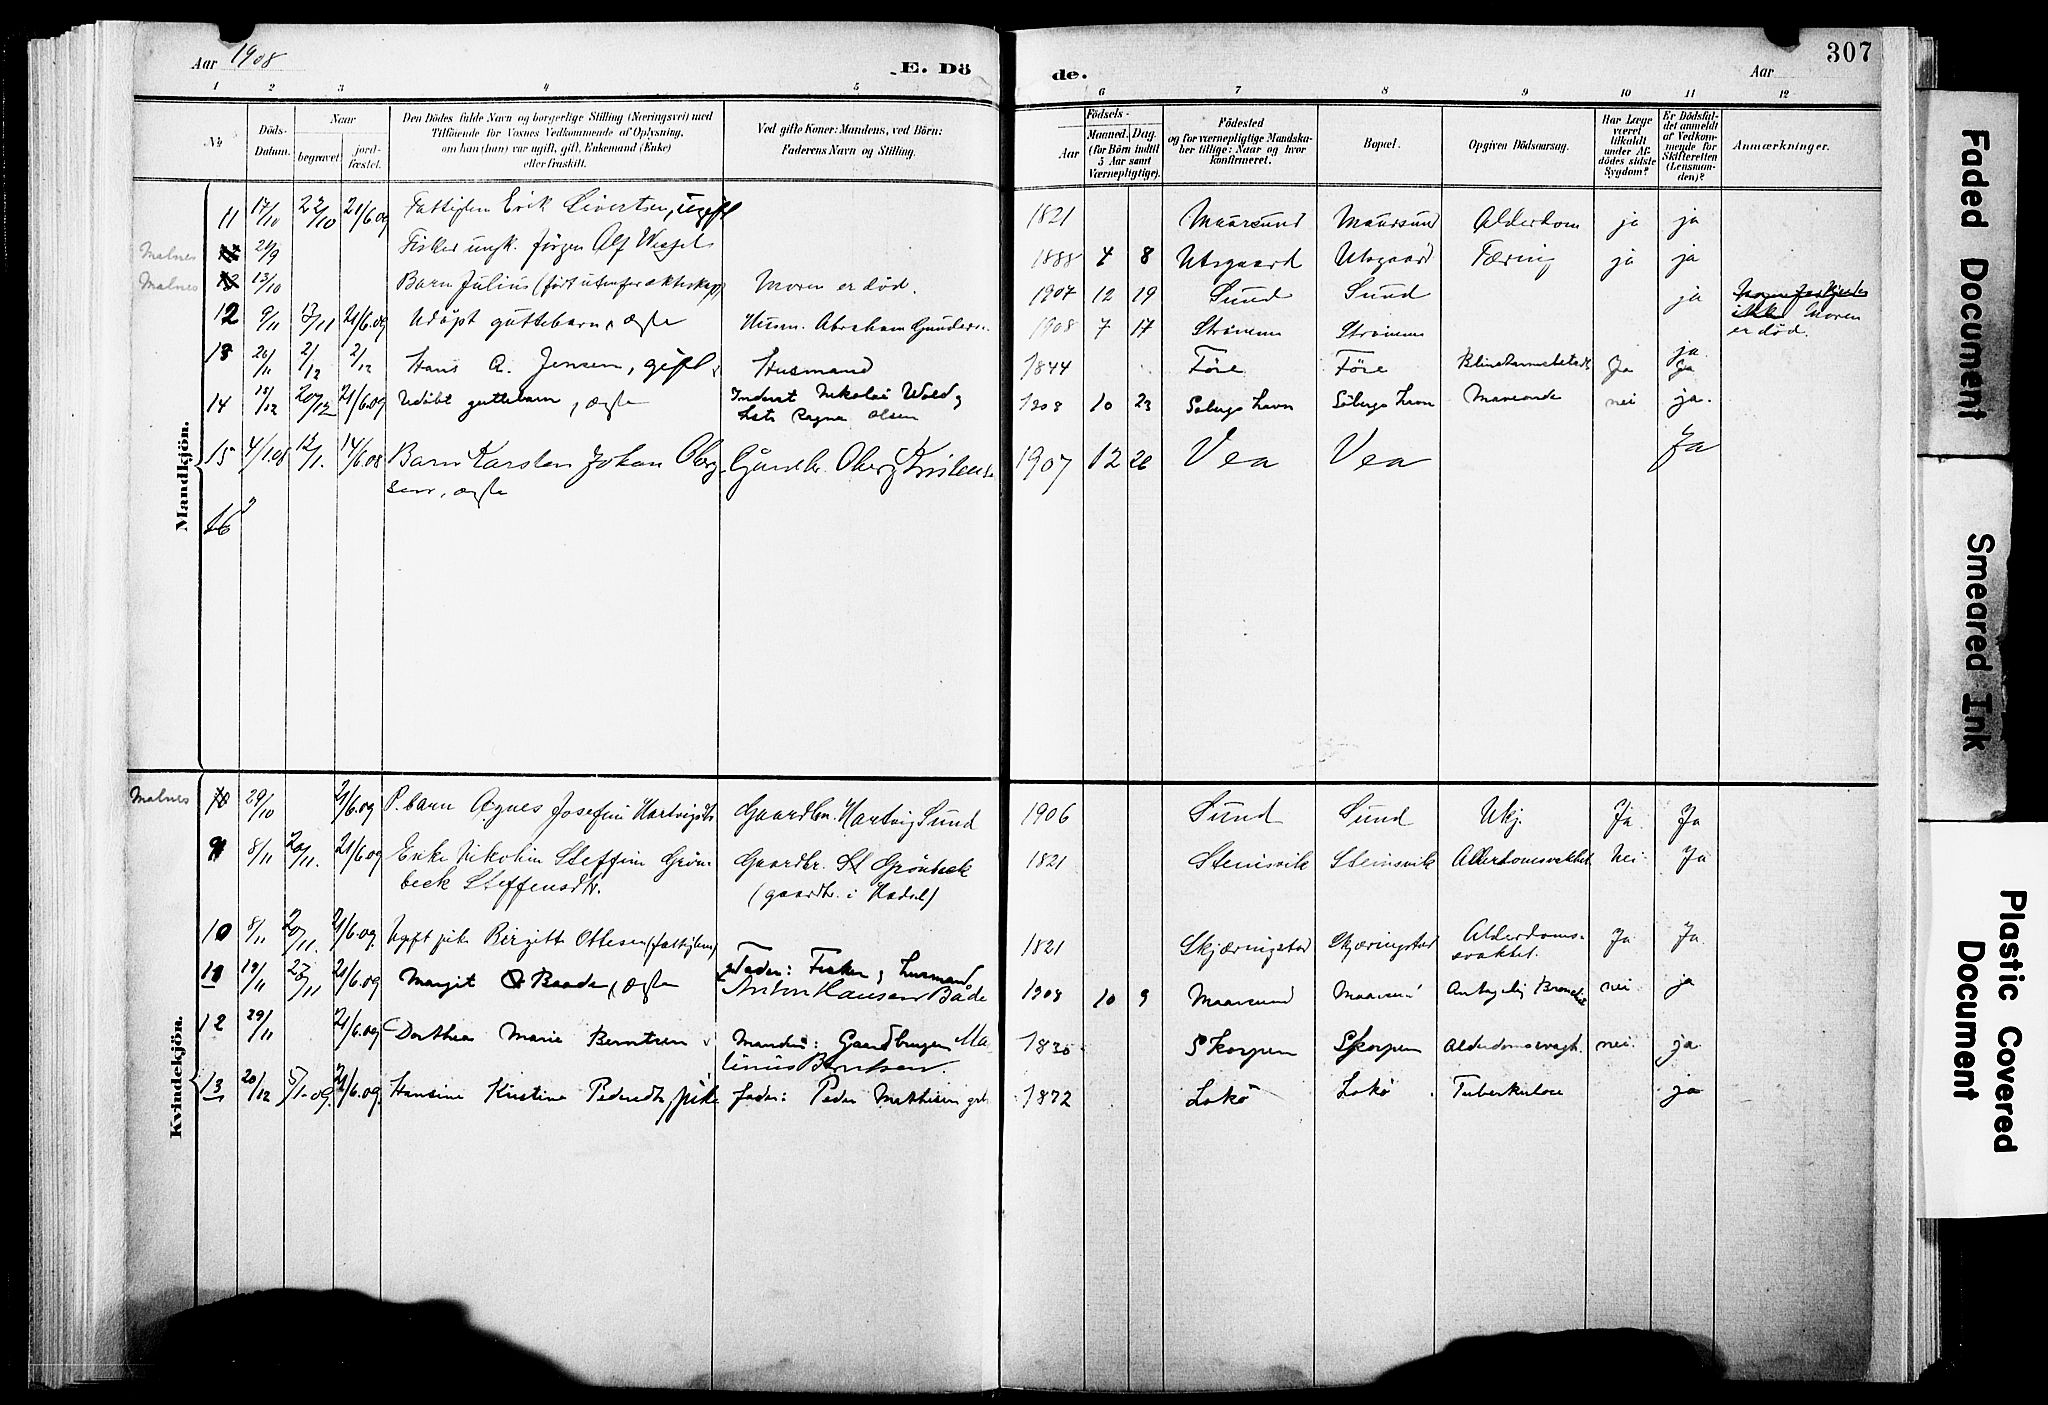 Aar 1908
E. Dö
de.
Aar
307
1 2 3 4 5 6 7 8 9 10 11 12
No.
Döds-Datum.
Naar
begravet.
jordfæstet.
Den Dödes fulde Navn og borgerlige Stilling (Næringsvei) med
Tilföiende for Voxnes Vedkommende af Oplysning,
om han (hun) var ugift, gift, Enkemand (Enke)
eller fraskilt.
Ved gifte Koner: Mandens, ved Börn:
Faderens Navn og Stilling.
Födsels-
Aar
Maaned.
Dag.
(for Börn indtil
5 Aar samt
Værnepligtige).
Födested
og for værnepligtige Mandska-
ber tillige: Naar og hvor
konfirmeret.
Bopæl.
Opgiven Dödsaarsag.
Har Læge
været
tilkaldt
under Af-
dödes sidste
Sygdom?
Er Dödsfal-
det anmeldt
af Vedkom-
mende for
Skifteretten
(Lensman-
den)?
Anmærkninger.
Mandkjön.
11 17/10 22/10 21/6.09 Fattiglem Erik Sivertsen, ugift 1821 Maarsund Maarsund Alderdom ja ja
Malnes 21/9 Fisker ungk. Jörgen Alf Wessel 1888 4 8 Utsgaard Utsgaard Tæring ja ja
Malnes 13/10 Barn Julius (født utenfor ekteskap) Moren er død. 1907 12 19 Sund Sund ja Moren
er død.
12 9/11 17/11 21/6.09 Udøpt guttebarn, ægte Husm. Abraham Gunders. 1908 7 17 Strømme Strømme ja
13 26/11 2/12 2/12 Hans A. Jensen, gift Husmand 1844 Före Före Ja Ja
14 18/12 20/12 21/6.09 Udöbt guttebarn, ægte Inderst Nikolai Wold og
Ragna Olsen 1908 10 23 Soberghavn Söberghavn nei ja.
15 4/1.08 12/1. 14/6.08 Barn Karsten Johan Oberg
sen, ægte Gaardbr. Oberg Kristensen 1907 12 26 Vea Vea Ja
16
Kvindekjön.
Malnes 29/10 21/6.09 P. barn Agnes Josefine Hartvigsdtr Gaardbr. Hartvig Sund 1906 Sund Sund Ukj. Ja Ja
9 8/11 20/11. 21/6.09 Enke Nikoline Steffine Grön-
beck Steffensdtr. Gaardbr. Grönbeck
(gaardbr. i Hadsel) 1821 Steinsvik Steinsvik Alderdomsvakhet Nei Ja
10 8/11 20/11. 21/6.09. Ugift pike Birgitte Ottesen (fattiglem) 1821 Skjæringstad Skjæringstad Alderdoms-
svakhet. Ja Ja
11 19/11 27/11 21/6.09 Margit Baade, ægte Fader: Fisker og husmand
Anton Hansen Både 1908 10 9 Maarsund Maarsund Antagelig nei ja
12 29/11 21/6.09. Dorthea Marie Berntsen Mandens: Gaardbruger Ma-
linius Berntsen. 1830 Skorpen Skorpen Alderdomssvagh. nei ja
13 20/12 5/1.09. 21/6.09. Hansine Kristine Pedersdtr, pike fader: Peder Mathisen 1872 Lokö Lokö Tuberkulose ja
Faded Document
Smeared Ink
Plastic Covered
Document